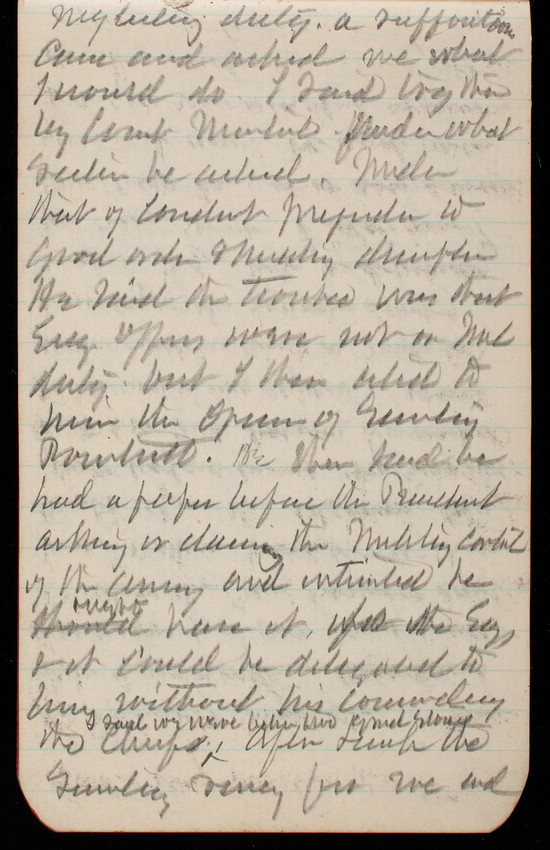 neglecting duty. a
Came and asked me what
I would do I said try them
by Court Martial. Under what
he asked. Under
that of Conduct prejudice to
good order & Military discipline
He said the trouble was that
Eng. Officers were not on Mil
duty. but I then cited to
him the Opinion of Secretary
. He then said he
had a paper before the President
asking or claiming the Military control
of the army and intimated he
might
should have it, the Eng
& it could be delegated to
him without his commanding
I said we were between two
the Chiefs, After the
Secretary for me and